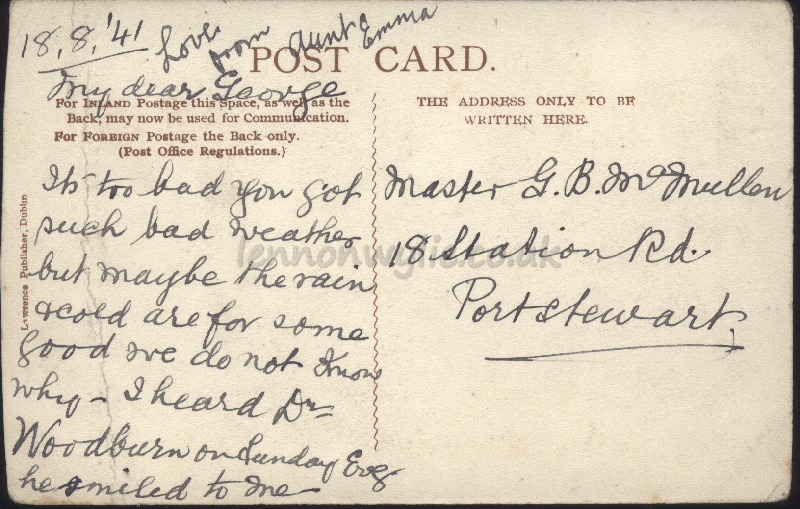 18.8.'41
Love from Aunt Emma
POST CARD.
My dear George
For INLAND Postage this Space, as well as the
Back, may now be used for Communication.
For FOREIGN Postage the Back only.
(Post Office Regulations.)
It's too bad you got
such bad weather
but maybe the rain
& cold are for some
good we do not know
why - I heard Dr
Woodburn on Sunday Evg
he smiled to me -
Lawrence Publisher, Dublin
THE ADDRESS ONLY TO BE
WRITTEN HERE.
Master G. B. McMullen
18 Station Rd.
Portstewart.
lennonwylie.co.uk